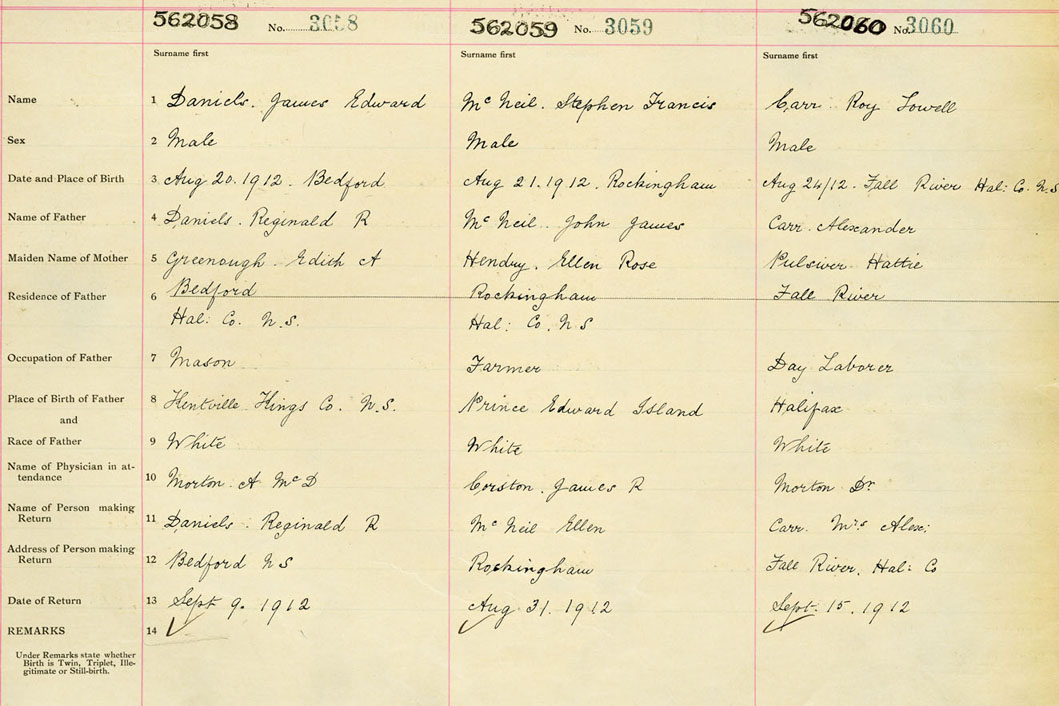 562058 No. 3058 562059 No. 3059 562060 No. 3060
Surname first Surname first Surname first
Name 1 Daniels. James Edward McNeil. Stephen Francis Carr Roy Lowell
Sex 2 Male Male Male
Date and Place of Birth 3 Aug 20. 1912. Bedford Aug 21. 1912. Rockingham Aug 24/12. Fall River Hal: Co. N.S
Name of Father 4 Daniels. Reginald R McNeil. John James Carr. Alexander
Maiden Name of Mother 5 Greenough Edith A Hendry. Ellen Rose Pulsiver Hattie
Residence of Father 6 Bedford Rockingham Fall River
Hal: Co. N.S. Hal: Co. N S
Occupation of Father 7 Mason Farmer Day Laborer
Place of Birth of Father 8 Kentville Kings Co. N.S. Prince Edward Island Halifax
and
Race of Father 9 White White White
Name of Physician in at-
tendance 10 Morton. A McD Corston. James R Morton Dr
Name of Person making
Return 11 Daniels. Reginald R McNeil Ellen Carr. Mrs Alex:
Address of Person making
Return 12 Bedford N S Rockingham Fall River, Hal: Co
Date of Return 13 Sept 9. 1912 Aug 31. 1912 Sept. 15. 1912
REMARKS 14
Under Remarks state whether
Birth is Twin, Triplet, Ille-
gitimate or Still-birth.